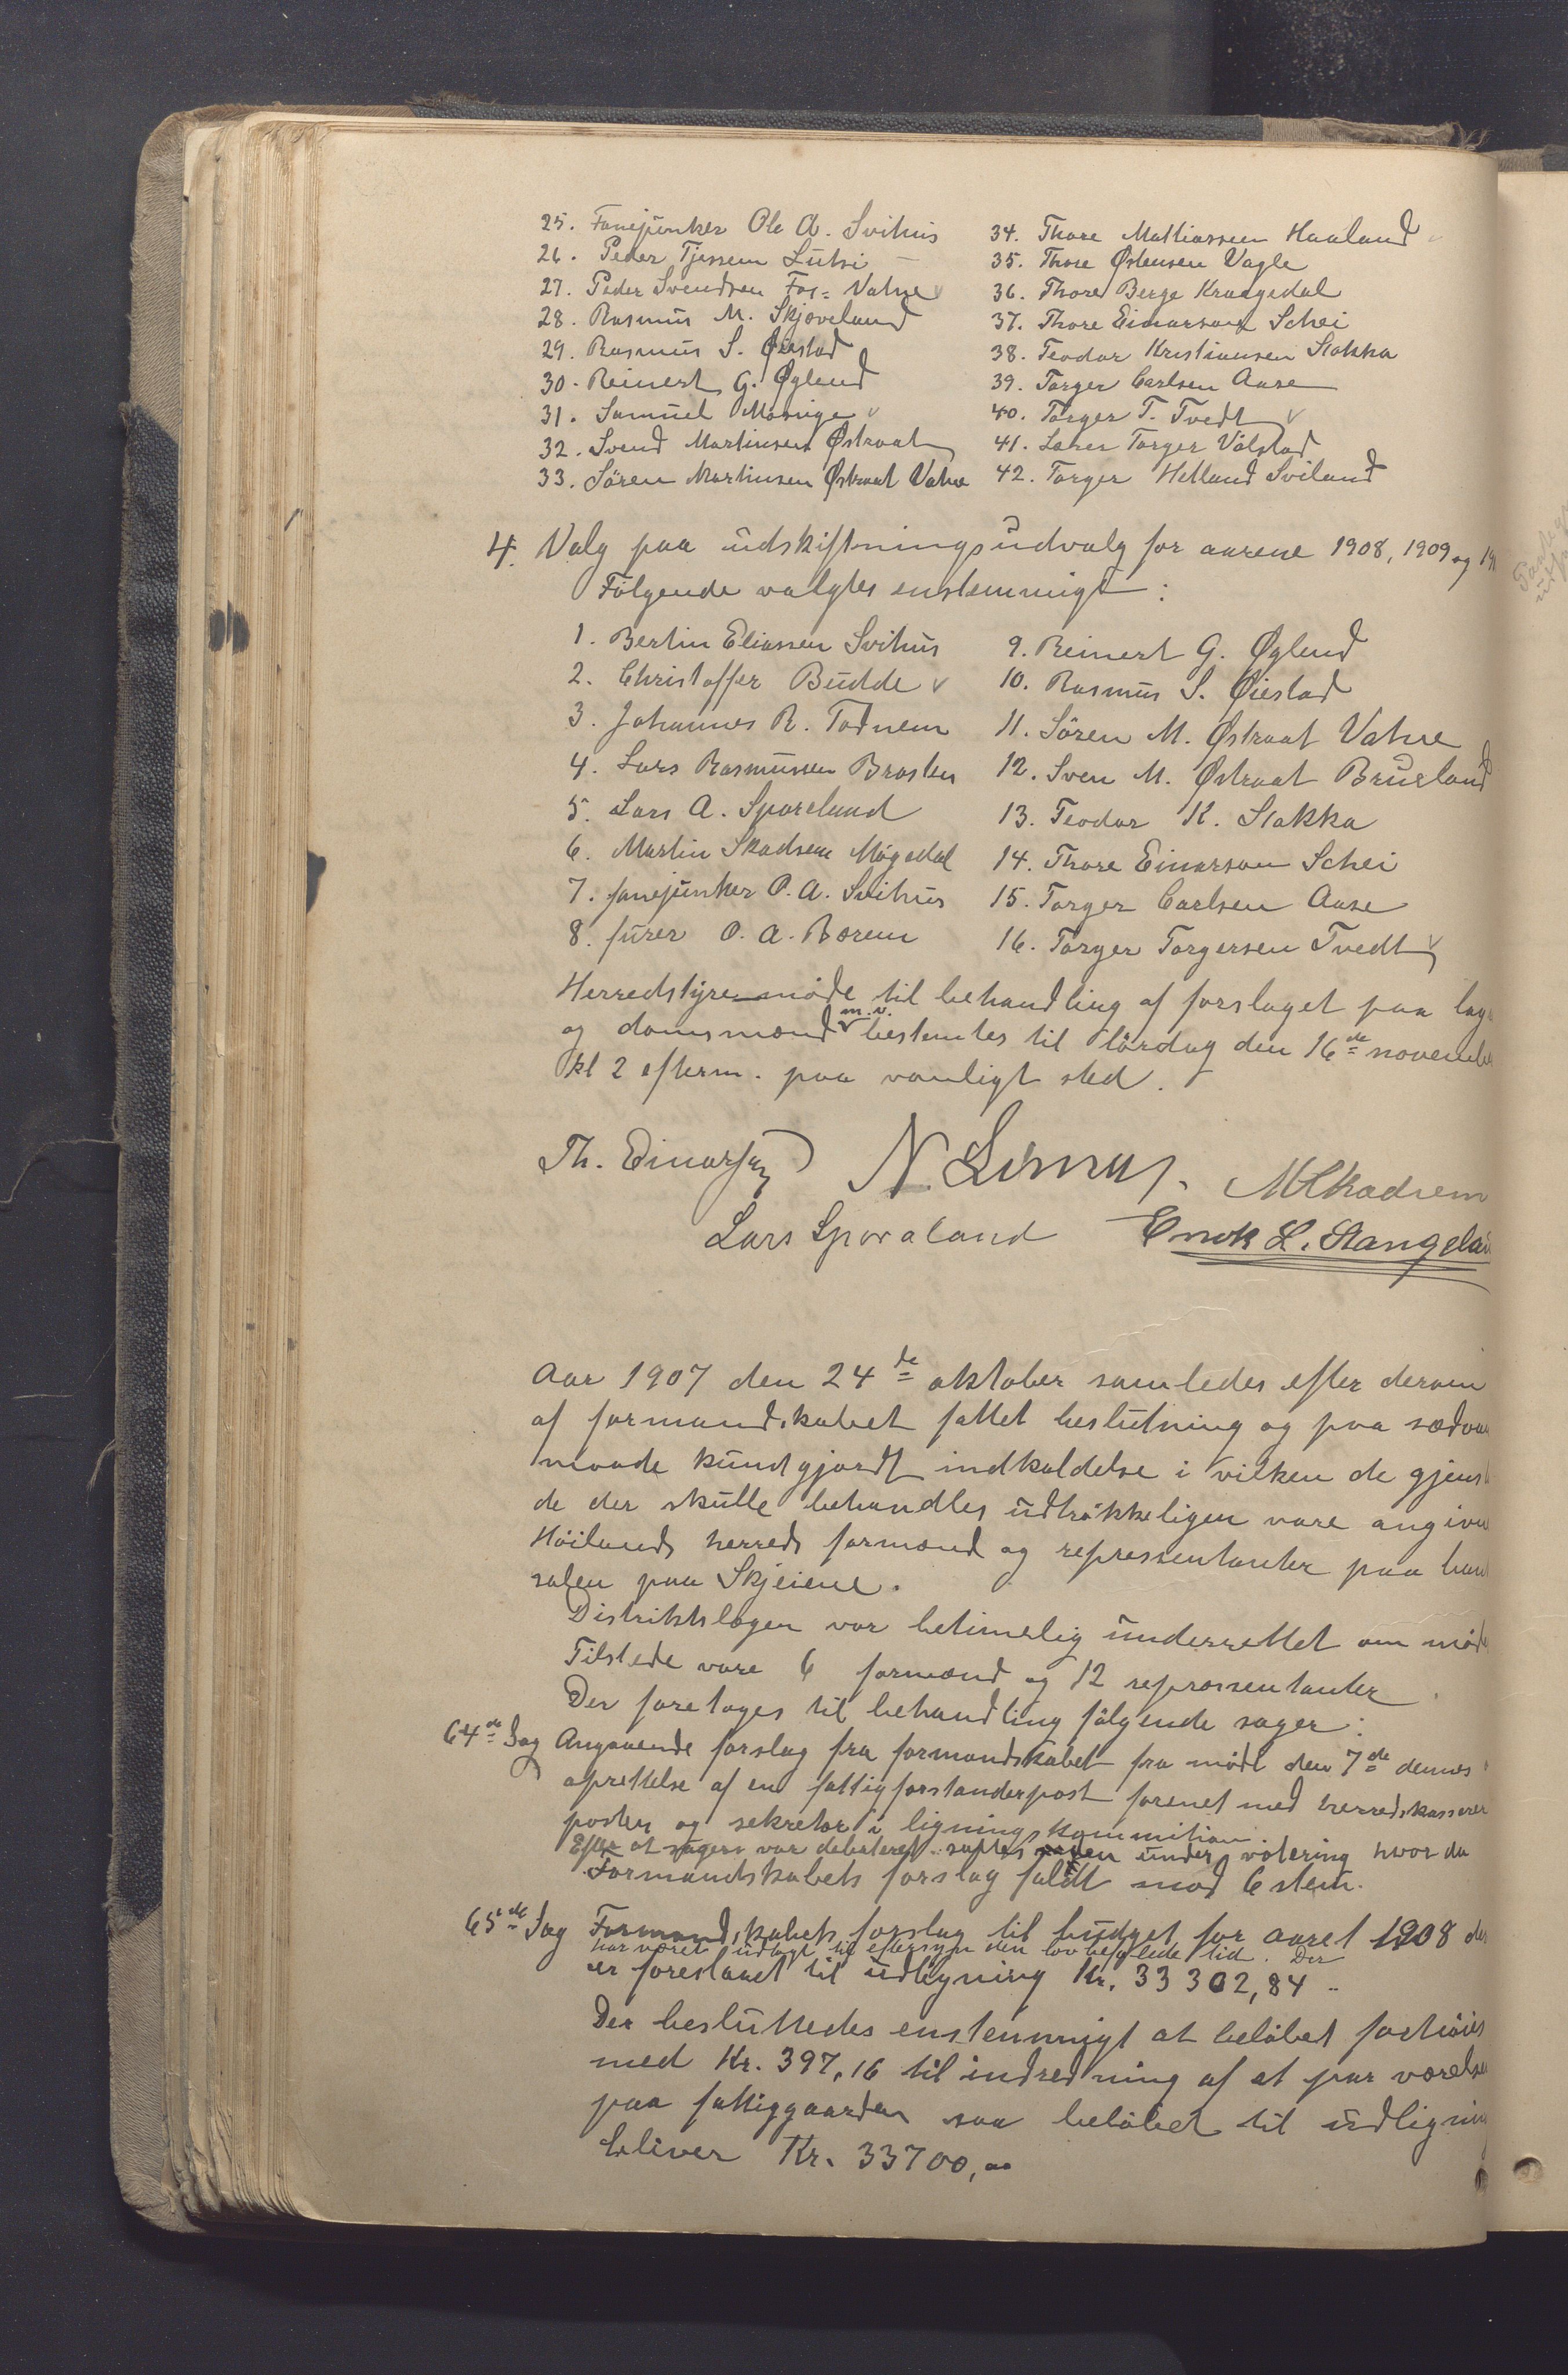 25. Fanejunker Ole A. Svihus
26. Peder Tjessem Lutsi
27. Peder Svendsen Fos= Vatne
28. Rasmus M. Skjæveland
29. Rasmus S. Øiestad
30. Reinert G. Øglend
31. Samuel Mosrige
32. Svend Martinsen Østraat
33. Sören Martinsen Østraat Vatne
34. Thore Mathiassen Haaland
35. Thore Østensen Vagle
36. Thore Berge Kraagedal
37. Thore Einarson Schei
38. Teodor Kristiansen Stokka
39. Torger Carlsen Aase
40. Torger T. Tvedt
41. Lærer Torger Välstad
42. Torger Hetland Sviland
4. Valg paa udskiftningsudvalg for aarene 1908, 1909 og 19
Følgende valgtes enstemmigt:
1. Bertin Eliassen Svihus
2. Christoffer Budde
3. Johannes R. Todnem
4. Lars Rasmussen Brasten
5. Lars A. Sporeland
6. Martin Skadsem Møgedal
7. fanejunker O. A. Svihus
8. furer O. A. Borem
9. Reinert G. Øglend
10. Rasmus S. Øiestad
11. Sören M. Østraat Vatne
12. Sven M. Østraat Brueland
13. Teodor K. Stokka
14. Thore Einarson Schei
15. Torger Carlsen Aase
16. Torger Torgersen Tvedt
Herredstyremöde til behandling af forslaget paa lag
og domsmænd m.v. bestemtes til lördag den 16de novembe
kl 2 efterm. paa vanligt sted.
Th. Einarsen N. Lima M Skadsem
Lars Sporaland Enok L. Stangelan
Aar 1907 den 24de oktober samledes efter derom
af formandskabet fattet beslutning og paa sædvan
maade kundgjordt indkaldelse i vilken de gjenst
de der skulle behandles udtrökkeligen vare angivne
Höilands herreds formænd og repressentanter paa
salen paa Skjeiene.
Distriktslægen var betimelig underrettet om möde
Tilstede vare 6 formænd og 12 repræsentanter.
Der foretoges til behandling fölgende sager:
64de Sag Angaaende forslag fra formandskabet fra mödt den 7de dennes
oprettelse af en fattigforstanderpost forenet med herredskasserer
posten og sekretær i ligningskommitionen.
Efter at sagen var debateret sattes sagen under votering hvor da
Formandskabets forslag faldt mod 6 stem.
65de Sag Formandskabets forslag til budget for aaret 1908 der
har været udlagt til eftersyn den lovbefalede tid. Der
er foreslaaet til udligning Kr. 33 302,84
Der besluttedes enstemmigt at belöbet forhöies
med Kr. 397,16 til indredning af et par værelse
paa fattiggaarden saa belöbet til udligning
bliver Kr. 33700,00